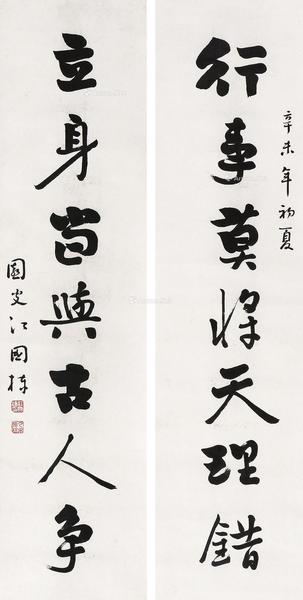 行事莫将天理錯
辛未年初夏
立身當與古人争
國安江國棟